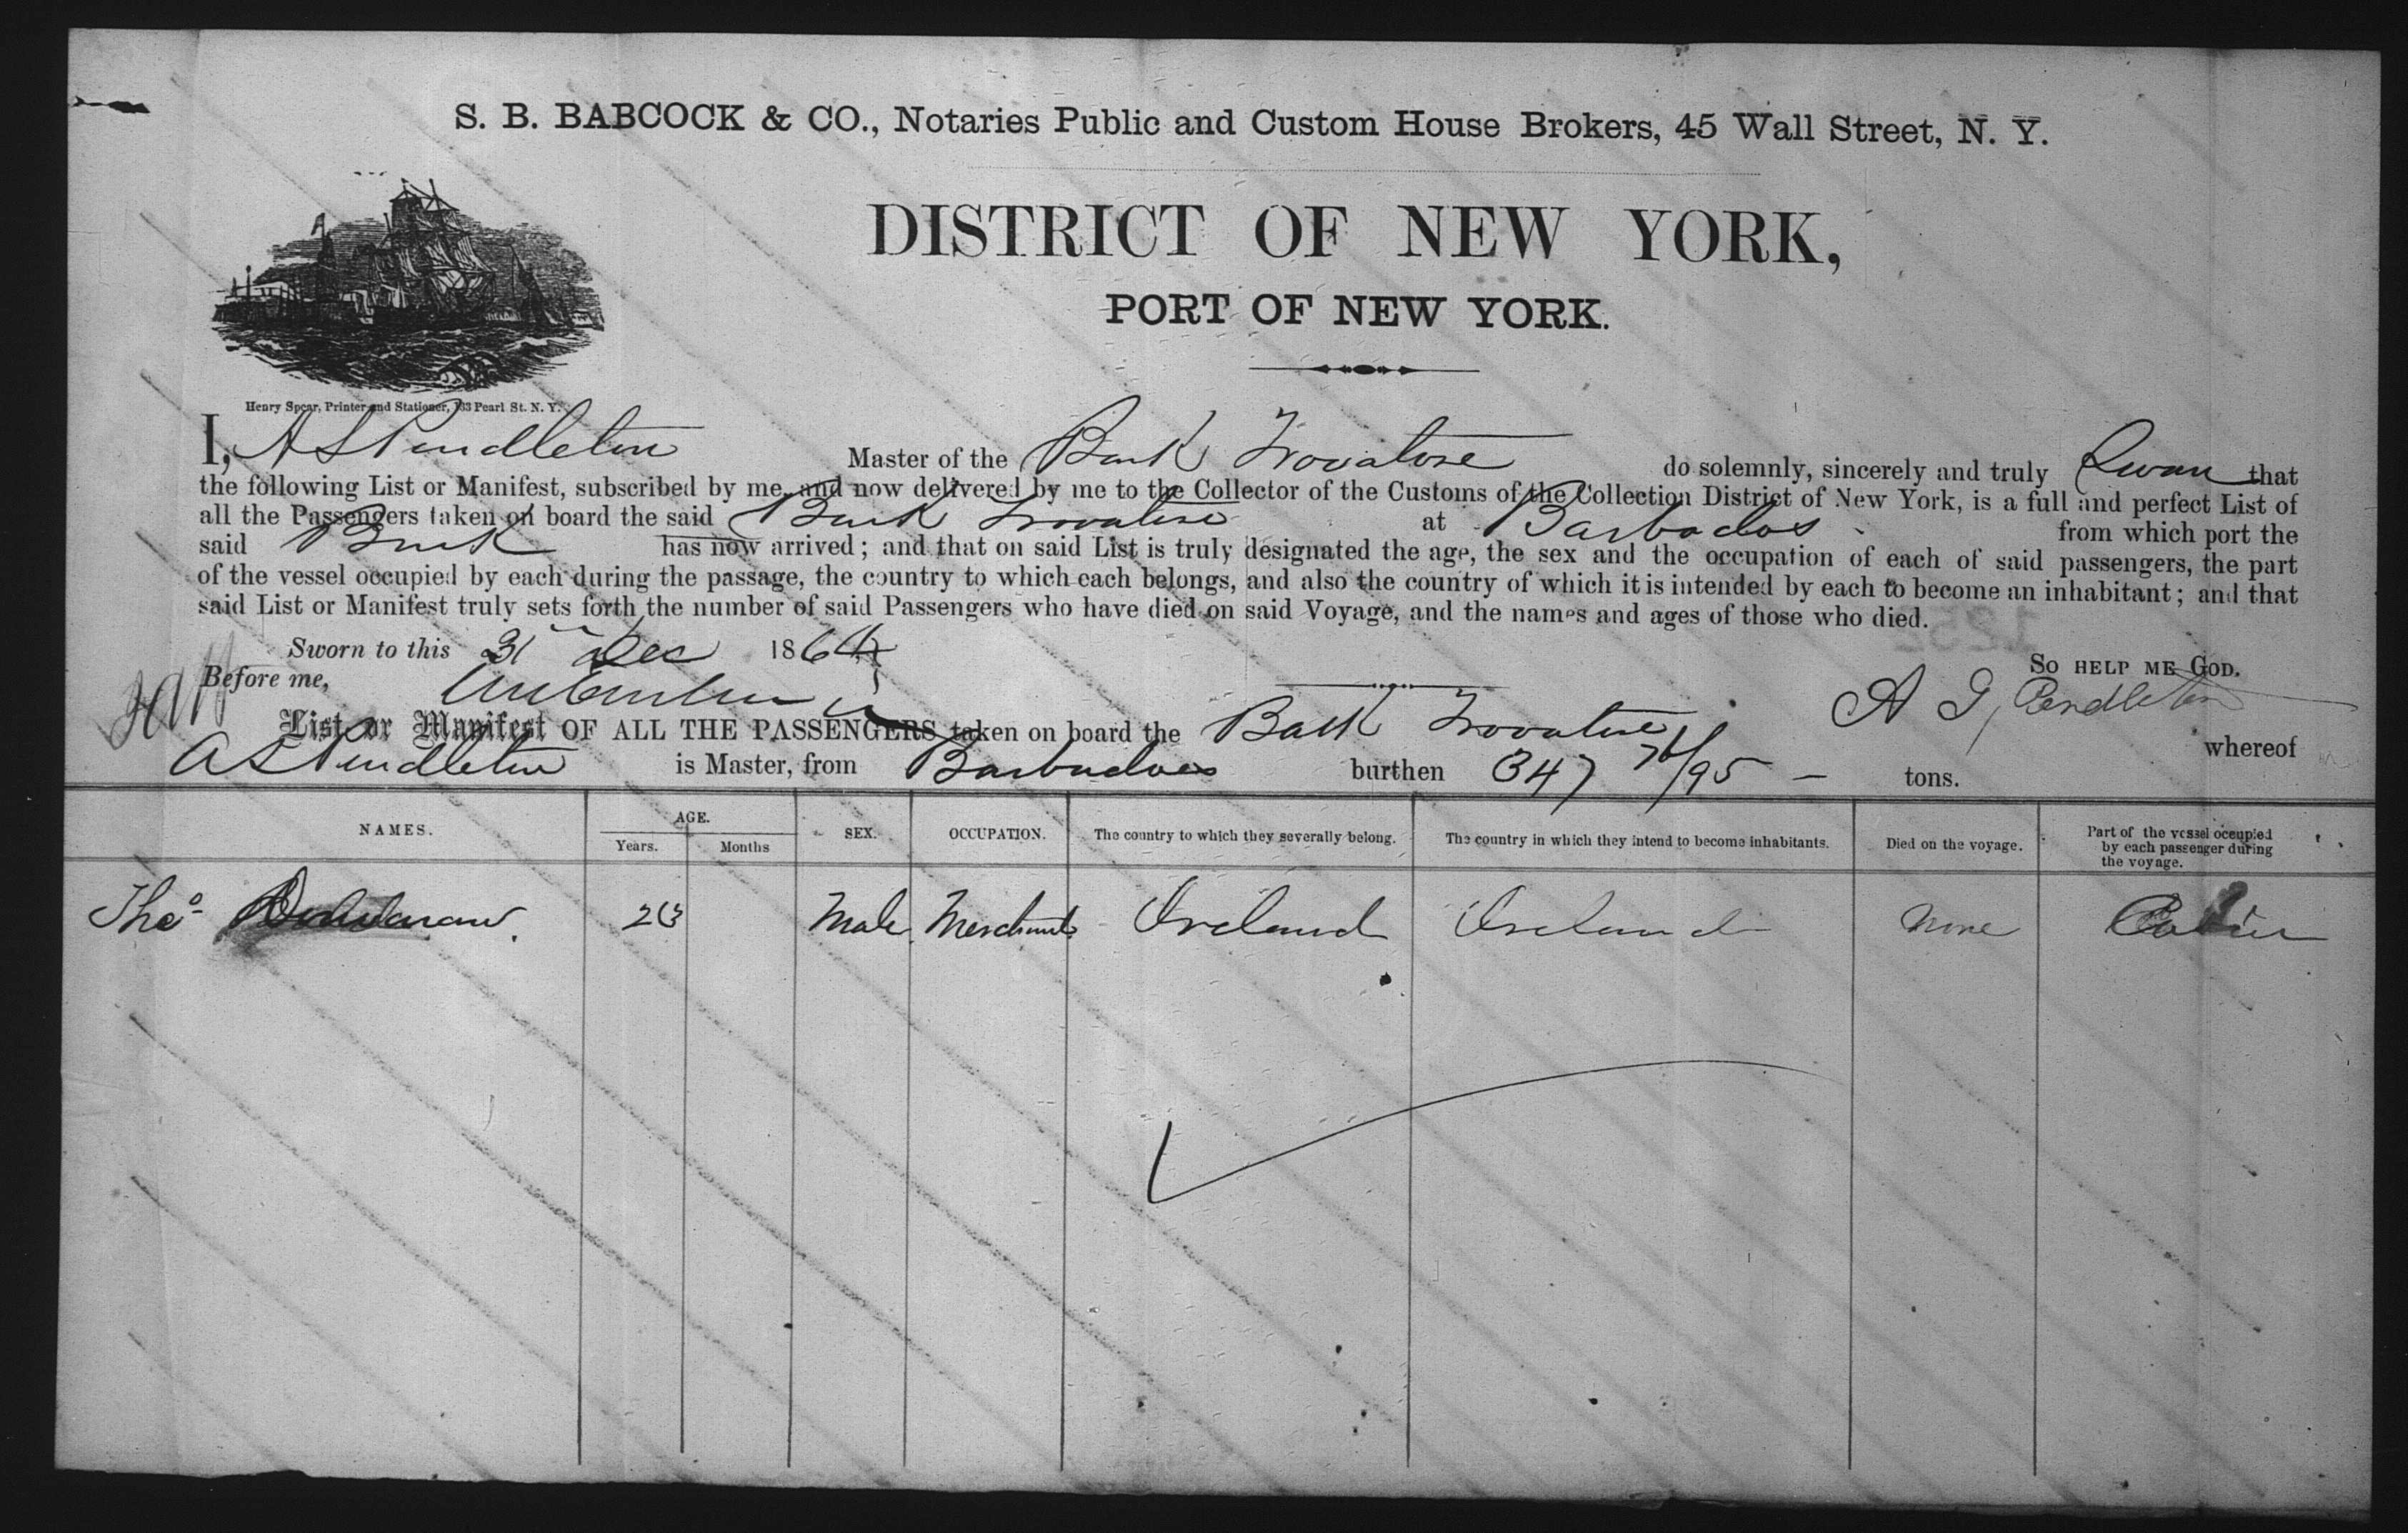 S. B. BABCOCK & CO., Notaries Public and Custom House Brokers, 45 Wall Street, N. Y.
DISTRICT OF NEW YORK,
PORT OF NEW YORK.
Henry Spear, Printer and Stationer, 133 Pearl St. N. Y.
I, A S Pendleton Master of the Bark Trovatore do solemnly, sincerely and truly Swear that
the following List or Manifest, subscribed by me, and now delivered by me to the Collector of the Customs of the Collection District of New York, is a full and perfect List of
all the Passengers taken on board the said Bark Trovatore at Barbados from which port the
said Bark has now arrived; and that on said List is truly designated the age, the sex and the occupation of each of said passengers, the part
of the vessel occupied by each during the passage, the country to which each belongs, and also the country of which it is intended by each to become an inhabitant; and that
said List or Manifest truly sets forth the number of said Passengers who have died on said Voyage, and the names and ages of those who died.
Sworn to this 31 Dec 1864
So HELP ME GOD.
Before me, A G Pendleton
List or Manifest OF ALL THE PASSENGERS taken on board the Bark Trovatore whereof
A S Pendleton is Master, from Barbadoes burthen 347 76/95 — tons.
NAMES. AGE. Years. Months SEX. OCCUPATION. The country to which they severally belong. The country in which they intend to become inhabitants. Died on the voyage. Part of the vessel occupied by each passenger during the voyage.
Thos 23 Male Merchant Ireland Ireland None Cabin